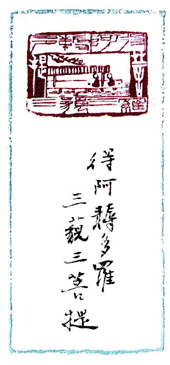 得阿耨多羅
三藐三菩提